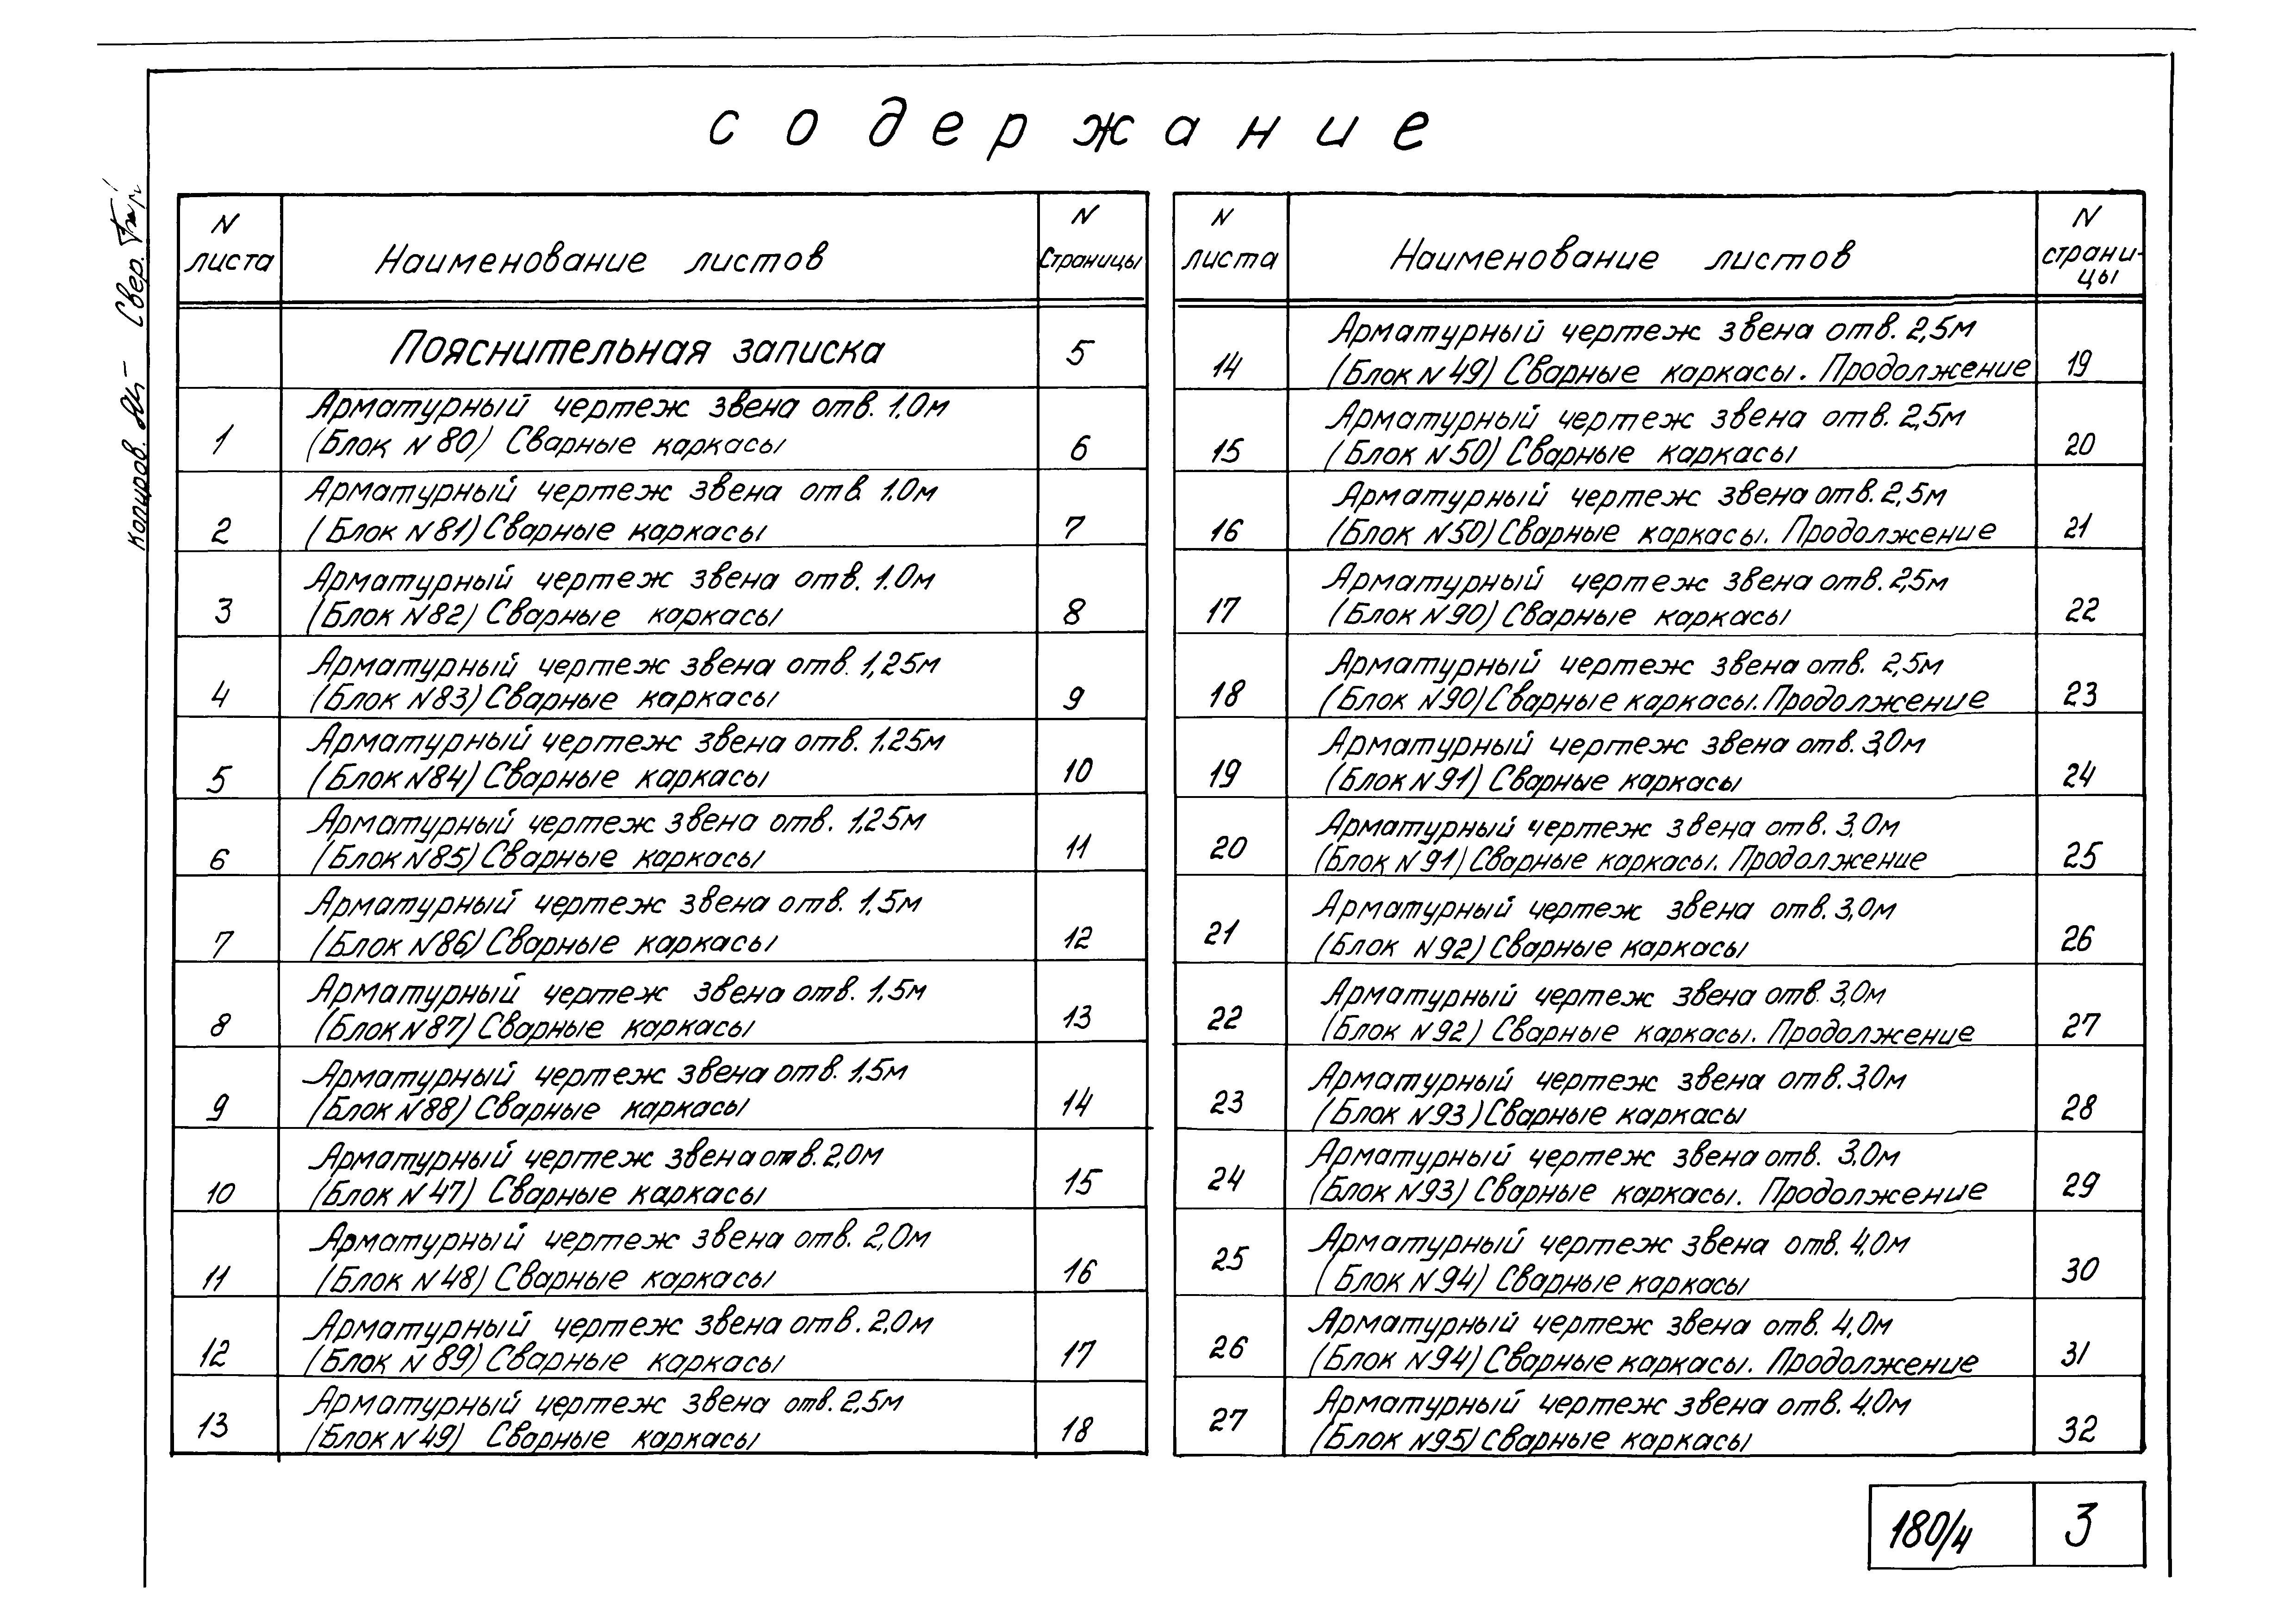 содержание
N листа
Наименование листов
N страницы
Пояснительная записка 5
1 Арматурный чертеж звена отв. 1,0м
(Блок N 80) Сварные каркасы 6
2 Арматурный чертеж звена отв. 1.0м
(Блок N81) Сварные каркасы 7
3 Арматурный чертеж звена отв. 1.0м
(Блок N82) Сварные каркасы 8
4 Арматурный чертеж звена отв. 1,25м
(Блок N83) Сварные каркасы 9
5 Арматурный чертеж звена отв. 1.25м
(Блок N84) Сварные каркасы 10
6 Арматурный чертеж звена отв. 1,25м
(Блок N85) Сварные каркасы 11
7 Арматурный чертеж звена отв. 1,5м
(Блок N86) Сварные каркасы 12
8 Арматурный чертеж звена отв. 1,5м
(Блок N87) Сварные каркасы 13
9 Арматурный чертеж звена отв. 1,5м
(Блок N88) Сварные каркасы 14
10 Арматурный чертеж звена отв. 2,0м
(Блок N 47) Сварные каркасы 15
11 Арматурный чертеж звена отв. 2,0м
(Блок N 48) Сварные каркасы 16
12 Арматурный чертеж звена отв. 2,0м
(Блок N 89) Сварные каркасы 17
13 Арматурный чертеж звена отв. 2,5м
(Блок N 49) Сварные каркасы 18
N листа
Наименование листов
N страни-
цы
14 Арматурный чертеж звена отв. 2,5м
(Блок N 49) Сварные каркасы. Продолжение 19
15 Арматурный чертеж звена отв. 2,5м
(Блок N50) Сварные каркасы 20
16 Арматурный чертеж звена отв. 2,5м
(Блок N50) Сварные каркасы. Продолжение 21
17 Арматурный чертеж звена отв. 2,5м
(Блок N90) Сварные каркасы 22
18 Арматурный чертеж звена отв. 2,5м
(Блок N90) Сварные каркасы. Продолжение 23
19 Арматурный чертеж звена отв. 3,0м
(Блок N91) Сварные каркасы 24
20 Арматурный чертеж звена отв. 3,0м
(Блок N 91) Сварные каркасы. Продолжение 25
21 Арматурный чертеж звена отв. 3,0м
(Блок N92) Сварные каркасы 26
22 Арматурный чертеж звена отв. 3,0м
(Блок N92) Сварные каркасы. Продолжение 27
23 Арматурный чертеж звена отв. 3,0м
(Блок N93) Сварные каркасы 28
24 Арматурный чертеж звена отв. 3,0м
(Блок N93) Сварные каркасы. Продолжение 29
25 Арматурный чертеж звена отв. 4,0м
(Блок N94) Сварные каркасы 30
26 Арматурный чертеж звена отв. 4,0м
(Блок N94) Сварные каркасы. Продолжение 31
27 Арматурный чертеж звена отв. 4,0м
(Блок N95) Сварные каркасы 32
180/4 3
Копиров. Свер.